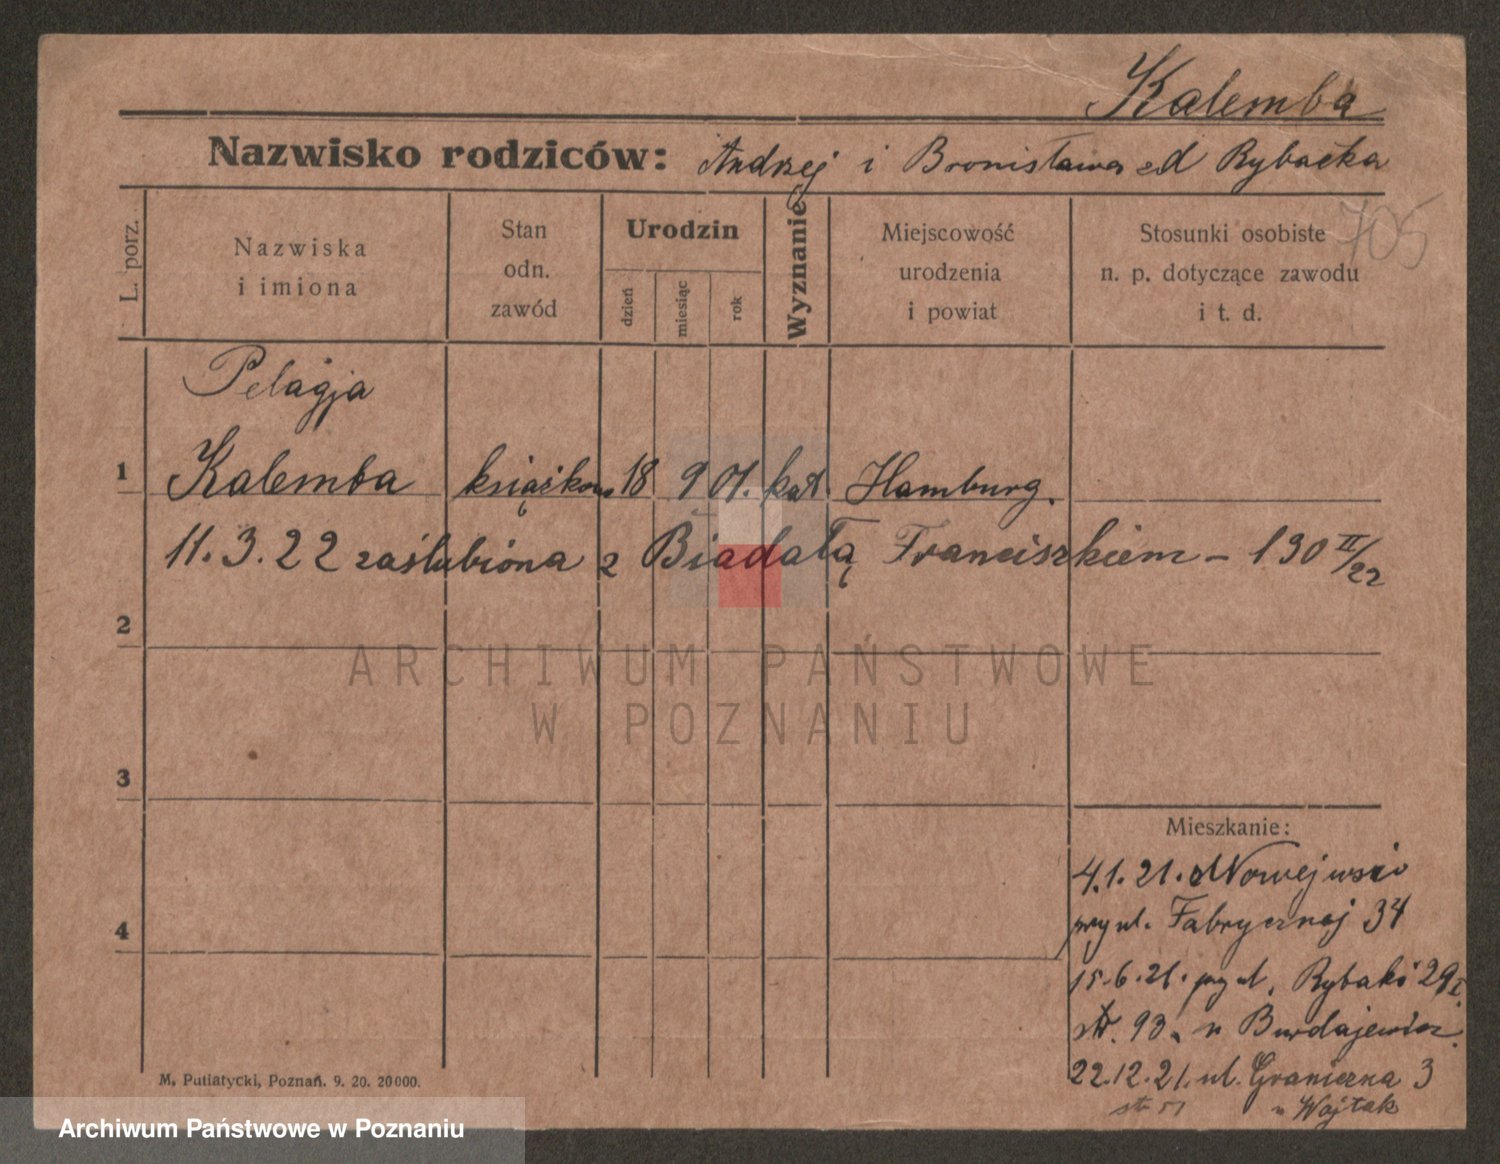 Kalemba
Nazwisko rodziców: Andrzej i Bronisława Rybacka
705
L. porz.
Nazwiska
i imiona
Stan
odn.
zawód
Urodzin
dzień
miesiąc
rok
Wyznanie
Miejscowość
urodzenia
i powiat
Stosunki osobiste
n. p. dotyczące zawodu
i t. d.
Pelagja
1 Kalemba 18 9 01. kat. Hamburg.
11.3.22 zaślubiona z Białatą Franciszkiem - 190 II/22
2
3
4
Mieszkanie:
4.1.21.
przy ul. Fabrycznej 34
15.6.21. przy ul. Rybaki 29 I.
str. 93. u Burdajewicz
22.12.21. ul. Graniczna 3
str 51 u Wojtak
M. Putiatycki, Poznań. 9. 20. 20000.
ARCHIWUM PAŃSTWOWE
W POZNANIU
Archiwum Państwowe w Poznaniu